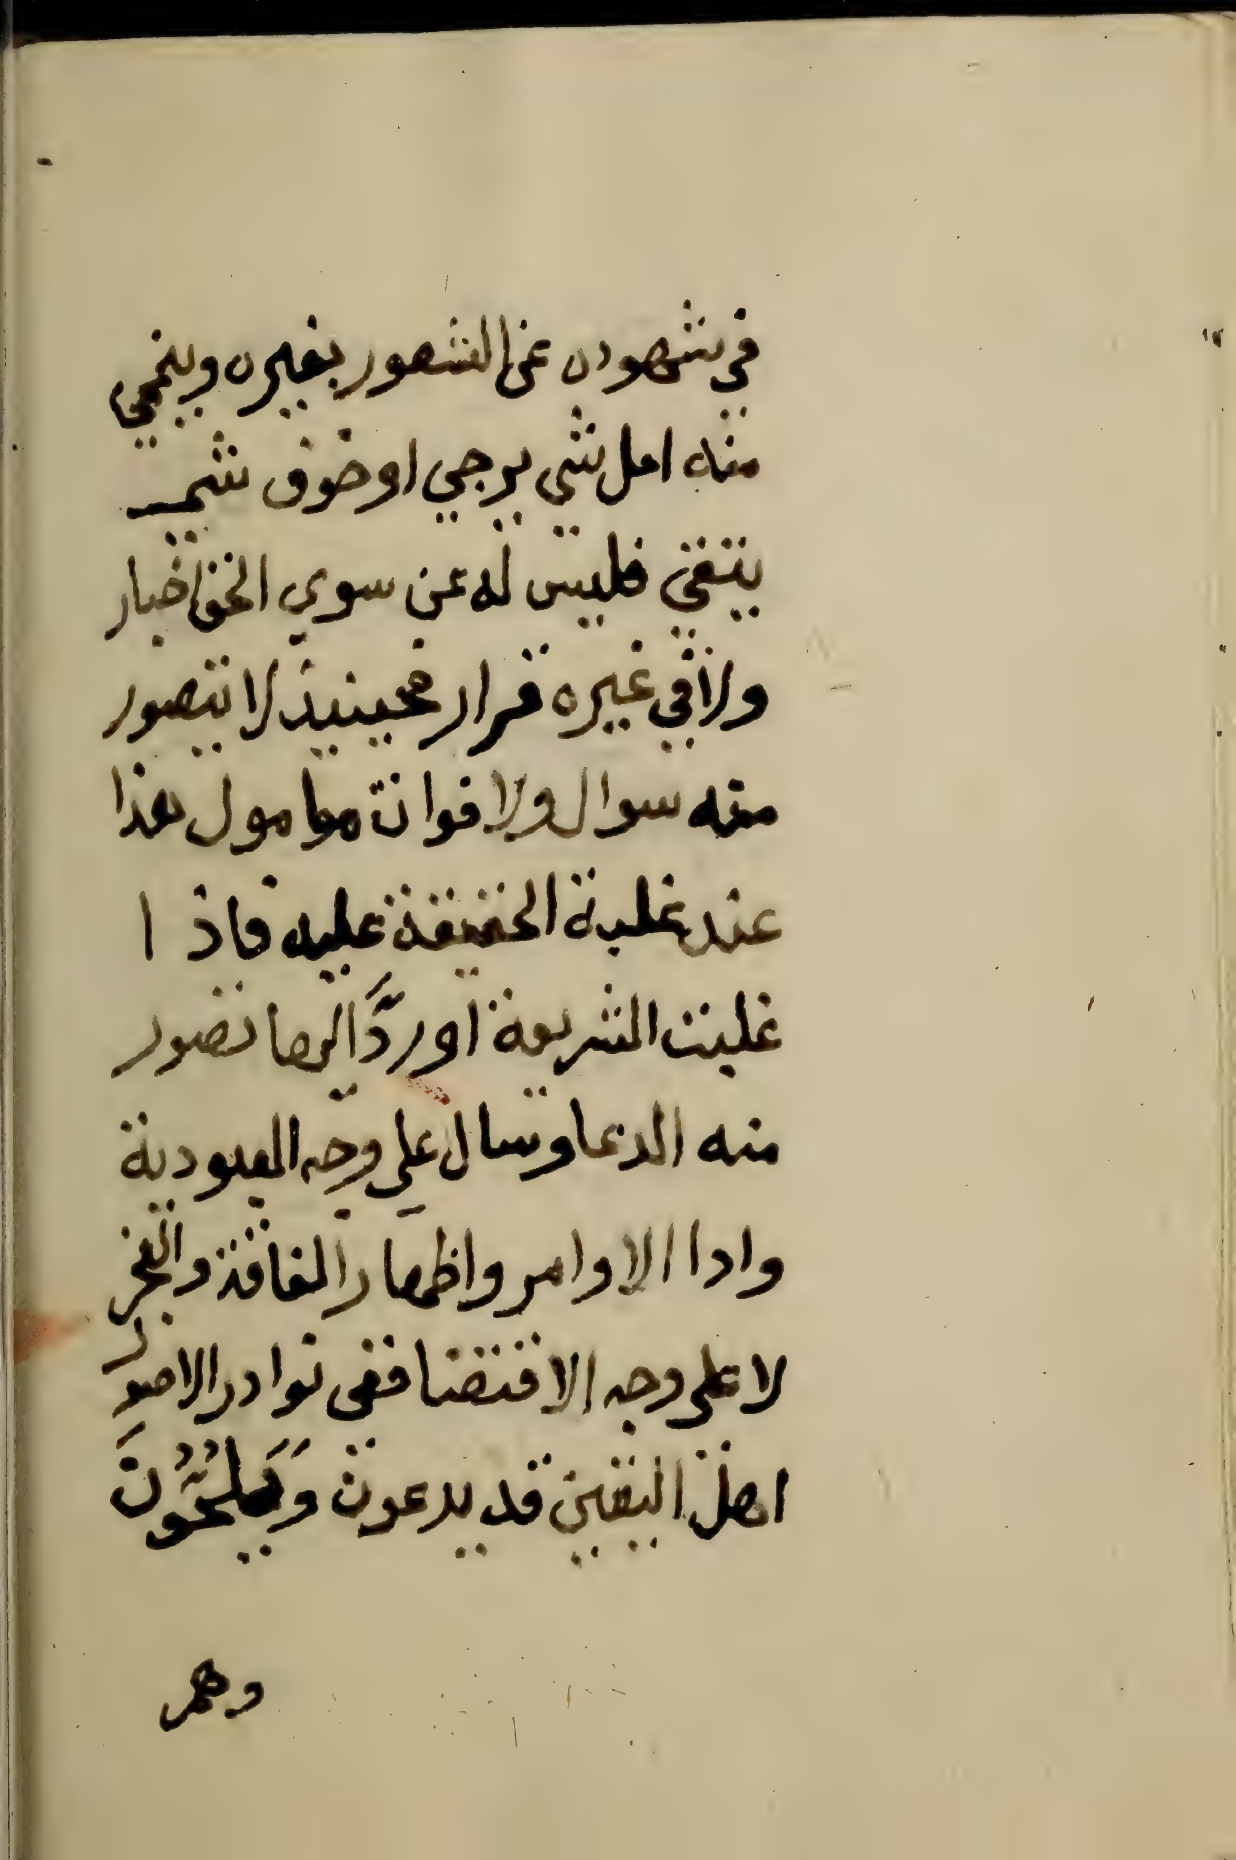 في شهوده عن الشعور بغيره وينمحي
منه امل شي يرجي او خوف شي
يتقي فليس له عن سوي الحق اخبار
ولا في غيره قرار فحينيذ لا يتصور
منه سوال ولا فوات مامول هذا
عند غلبة الحقيقة عليه فاذا
غلبت الشريعة اورد اليها تصور
منه الدعا وسال علي وجه العبودية
وادا الاوامر واظهار الفاقة والعجز
لا على وجه الاقتضا ففى نوادر الاصول
اهل اليقين قد يدعون ويلحون
وهم